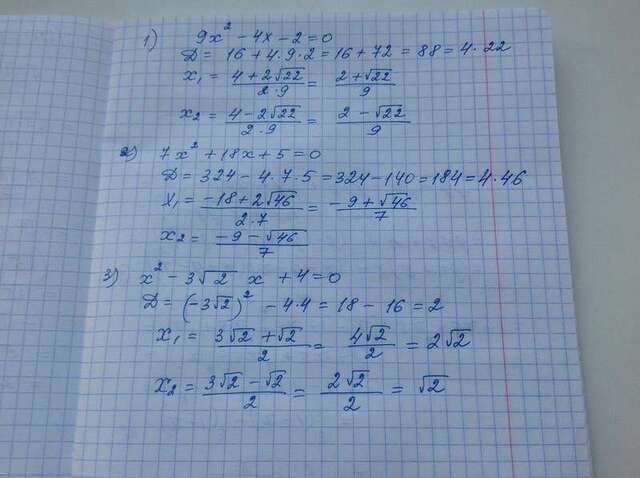 1) 9x² - 4x - 2 = 0
D = 16 + 4·9·2 = 16 + 72 = 88 = 4·22
x₁ = (4 + 2√22)/(2·9) = (2 + √22)/9
x₂ = (4 - 2√22)/(2·9) = (2 - √22)/9
2) 7x² + 18x + 5 = 0
D = 324 - 4·7·5 = 324 - 140 = 184 = 4·46
x₁ = (-18 + 2√46)/(2·7) = (-9 + √46)/7
x₂ = (-9 - √46)/7
3) x² - 3√2 x + 4 = 0
D = (-3√2)² - 4·4 = 18 - 16 = 2
x₁ = (3√2 + √2)/2 = 4√2/2 = 2√2
x₂ = (3√2 - √2)/2 = 2√2/2 = √2